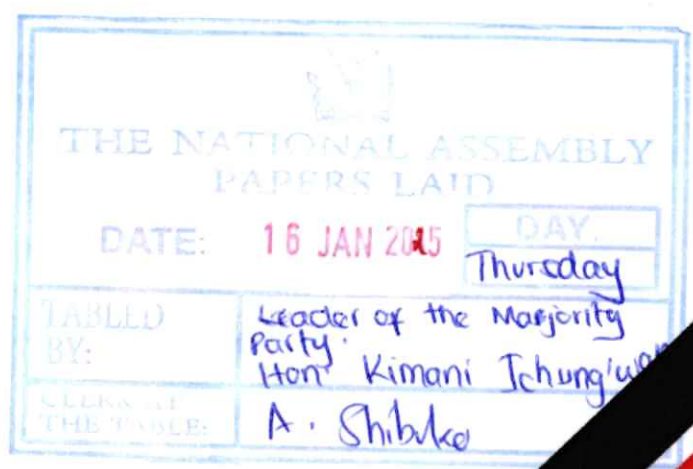 THE NATIONAL ASSEMBLY
PAPERS LAID
DATE: 16 JAN 2025 DAY.
Thursday
TABLED BY: Leader of the Marjority
Party.
Hon Kimani
CLERK AT THE TABLE: A. Shibuko